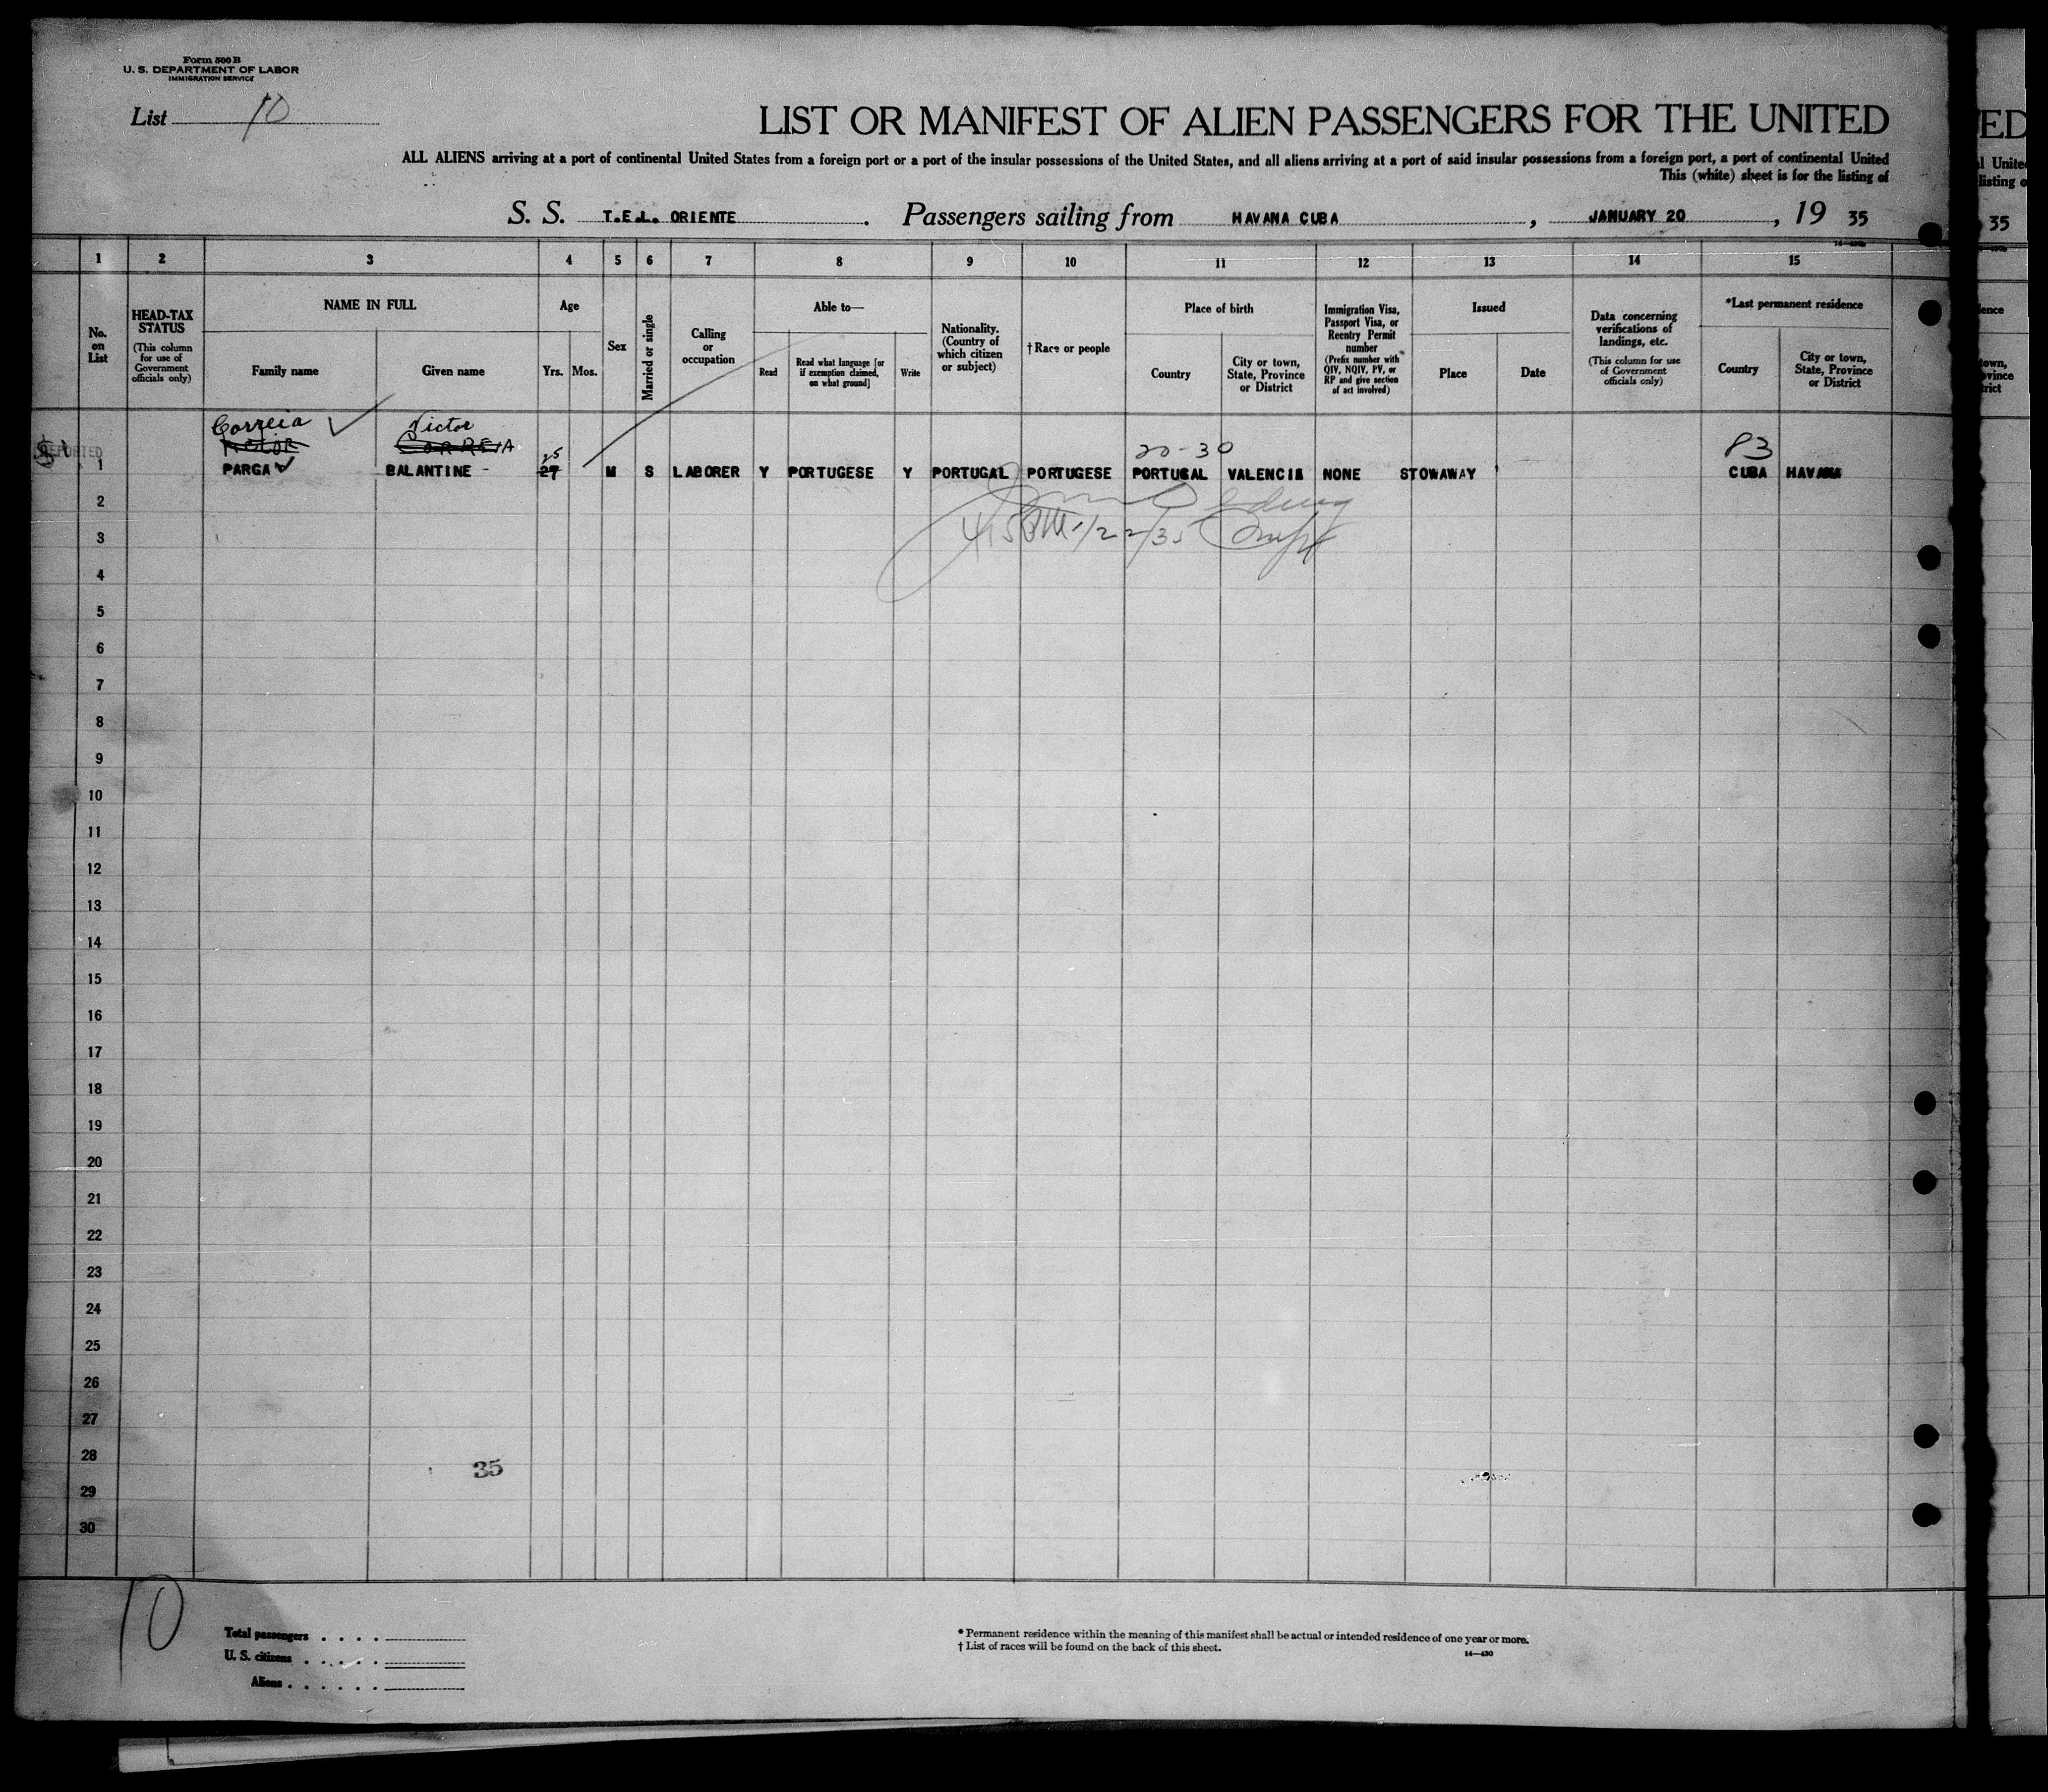 Form 500 B
U. S. DEPARTMENT OF LABOR
IMMIGRATION SERVICE
List 10
LIST OR MANIFEST OF ALIEN PASSENGERS FOR THE UNITED
ALL ALIENS arriving at a port of continental United States from a foreign port or a port of the insular possessions of the United States, and all aliens arriving at a port of said insular possessions from a foreign port, a port of continental United
This (white) sheet is for the listing of
S. S. T.E.L. ORIENTE. Passengers sailing from HAVANA CUBA, JANUARY 20, 19 35
1 2 3 4 5 6 7 8 9 10 11 12 13 14 15
No. on List
HEAD-TAX STATUS
(This column for use of Government officials only)
NAME IN FULL
Family name
Given name
Age
Yrs.
Mos.
Sex
Married or single
Calling or occupation
Able to—
Read
Read what language [or if exemption claimed, on what ground]
Write
Nationality. (Country of which citizen or subject)
†Race or people
Place of birth
Country
City or town, State, Province or District
Immigration Visa, Passport Visa, or Reentry Permit number
(Prefix number with QIV, NQIV, PV, or RP and give section of act involved)
Issued
Place
Date
Data concerning verifications of landings, etc.
(This column for use of Government officials only)
*Last permanent residence
Country
City or town, State, Province or District
Correia Victor
VICTOR CORREIA
25 20-30 83
1 PARGA BALANTINE - 27 M S LABORER Y PORTUGESE Y PORTUGAL PORTUGESE PORTUGAL VALENCIA NONE STOWAWAY CUBA HAVANA
2
3 1/22/35
4
5
6
7
8
9
10
11
12
13
14
15
16
17
18
19
20
21
22
23
24
25
26
27
28 35
29
30
10
Total passengers . . . .
U. S. citizens . . . . .
Aliens . . . . . .
* Permanent residence within the meaning of this manifest shall be actual or intended residence of one year or more.
† List of races will be found on the back of this sheet.
14—430
ED
35